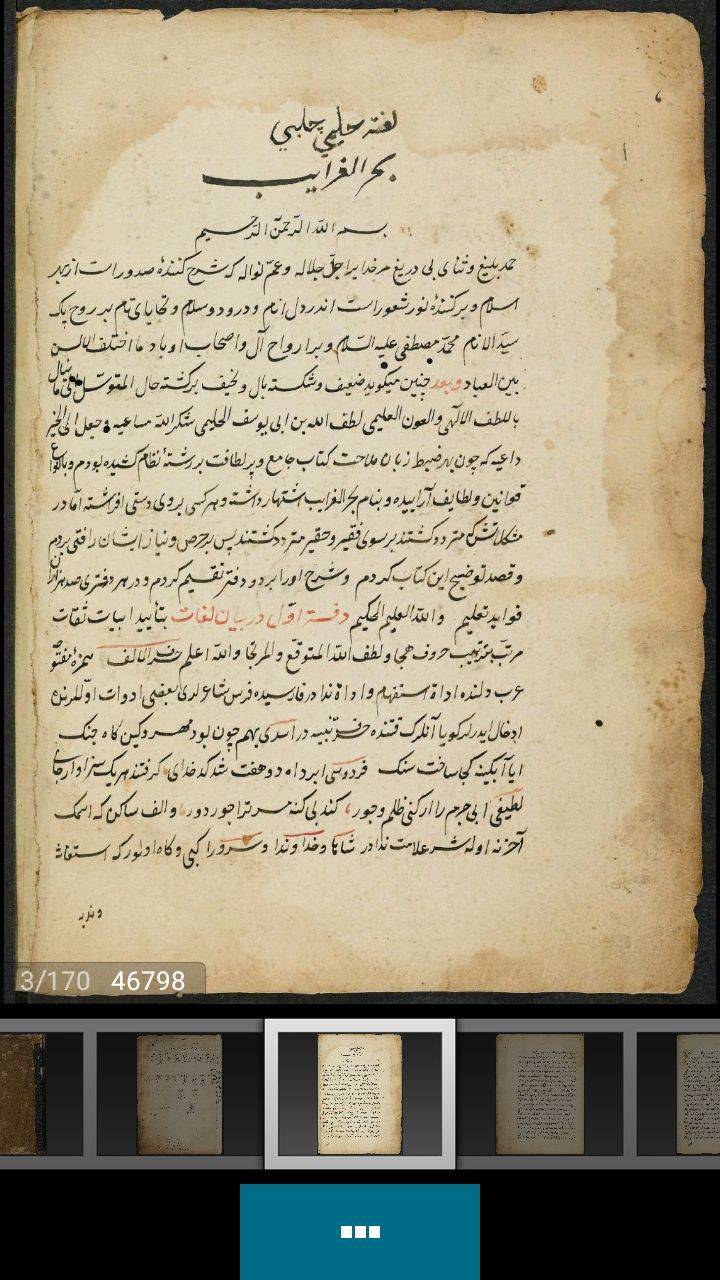 لغت حلیمی چلبی
بحر الغرایب
بسم الله الرحمن الرحیم
حمد بلیغ و ثنای بی دریغ مر خدایرا جل جلاله و عم نواله که شرح کنندهٔ صدور است از بهر
اسلام و بر کنندهٔ نور شعور است اندر دل انام و درود و سلام و تحایای تام بر روح پاک
سید الانام محمد مصطفی علیه السلام و بر ارواح آل و اصحاب او باد ما اختلف الالسن
بین العباد و بعد چنین میگوید ضعیف و شکسته بال و نحیف برکشته حال المتوسل
باللطف الالهی والعون العلیمی لطف الله بن ابی یوسف الحلیمی شکر الله مساعیه و جعل الی الخیر
داعیه که چون بهر ضبط زبان ملاحت کتاب جامع و پر لطافت بر رشتهٔ نظام کشیده بودم و بانواع
قوانین و لطایف آراییده و بنام بحر الغرایب اشتهار داشته و هر کسی بروی دستی افراشته اما در
مشکلاتش متردد کشتند بر سوی فقیر و حقیر متردد کشتند پس بر حرص و نیاز ایشان رافتی بردم
و قصد توضیح این کتاب کردم و شرح اورا بر دو دفتر تقسیم کردم و در هر دفتری صد هزاران
فواید تعلیم والله العلیم الحکیم دفتر اول در بیان لغات بتأیید ابیات ثقات
مرتب بترتیب حروف هجا و لطف الله المتوقع والمرتجا والله اعلم حرف الالف همزهٔ مفتوح
عرب دلنده اداة استفهام و اداة ندا در فارسیده فرس شاعرلری بعضی ادوات اوللرنده
ادخال ایدرلر کویا آنلرک قتنده حرف تنبیه در اسدی بهم چون بود مهر و کین کاه جنک
ایا آبکینه کجا ساخت سنک فردوسی ابر ده و دو هفت شد کدخدای کرفتند هر یک سزاوار جای
لطیفی ابی جرم را ار کنی ظلم و جور، کند بی کنه مر ترا جور دور، و الف ساکن که اسمک
آخرنه اوله شر علامت ندادر شاها و خداوندا و سرورا کبی و کاه اولور که استغاثه
و ندبه
3/170 46798